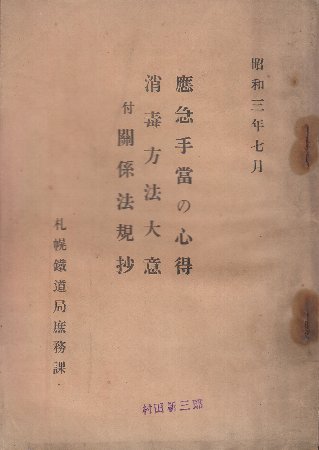 昭和三年七月
應急手當の心得
消毒方法大意
付 關係法規抄
札幌鐵道局庶務課
村田新三郎